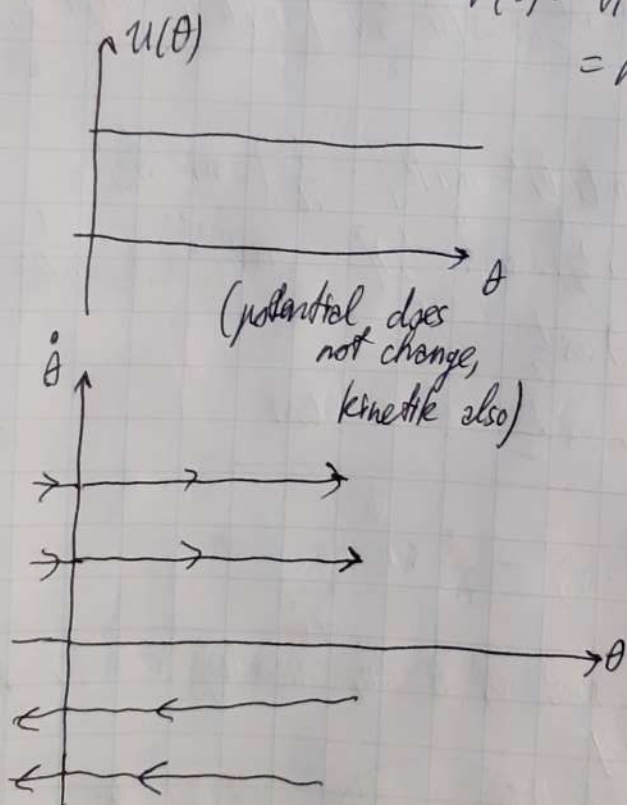 U(θ)
θ
(potential does
not change,
kinetik also)
θ̇
θ